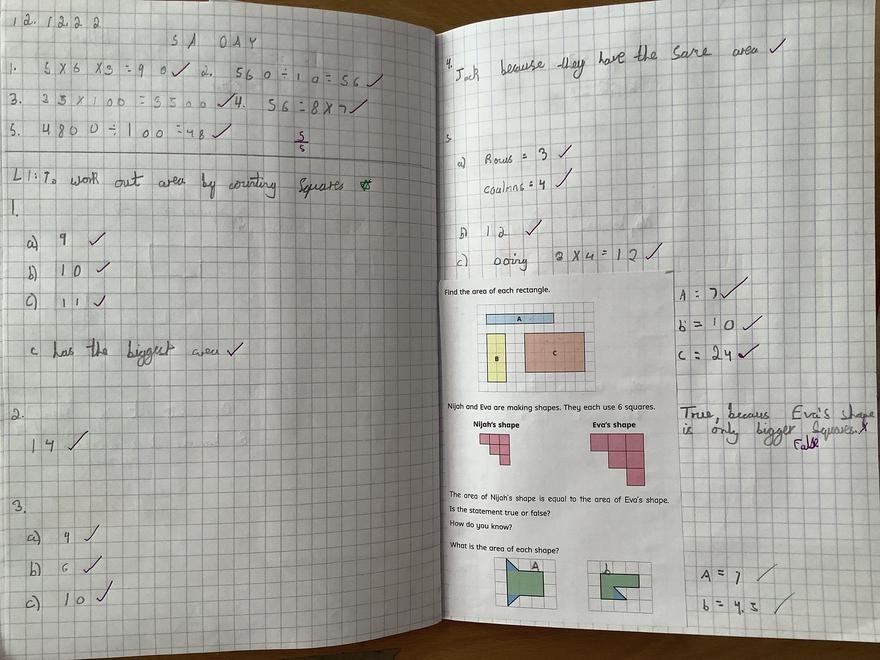 12.12.22
SA DAY
1. 5 X 6 X 3 = 90 2. 560 ÷ 10 = 56
3. 35 X 100 = 3500 4. 56 = 8 X 7
5. 4800 ÷ 100 = 48
5
5
LI: To work out area by counting Squares
1.
a) 9
b) 10
c) 11
c has the biggest area
2.
14
3.
a) 4
b) 6
c) 10
4.
Jack because they have the same area
5
a) Rows = 3
coulmns = 4
b) 12
c) Doing 3 X 4 = 12
Find the area of each rectangle.
A
B
C
A = 7
b = 10
c = 24
Nijah and Eva are making shapes. They each use 6 squares.
Nijah's shape Eva's shape
The area of Nijah's shape is equal to the area of Eva's shape.
Is the statement true or false?
How do you know?
True, becaus Eva's shape
is only bigger Squares. X
False
What is the area of each shape?
A b
A = 7
b = 4.5